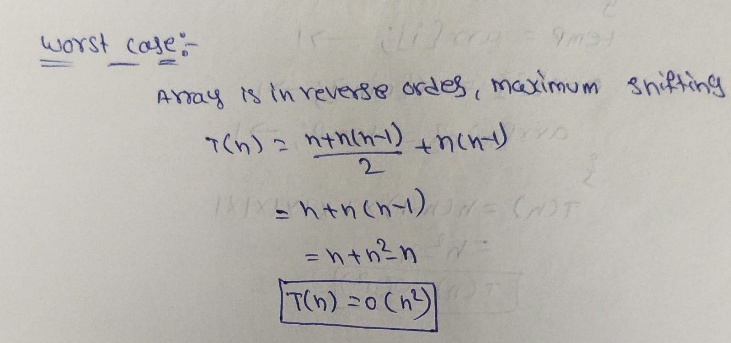 worst case:-
Array is in reverse order, maximum shifting
T(n) = (n+n(n-1))/2 + n(n-1)
= n+n(n-1)
= n+n²-n
T(n) = O(n²)